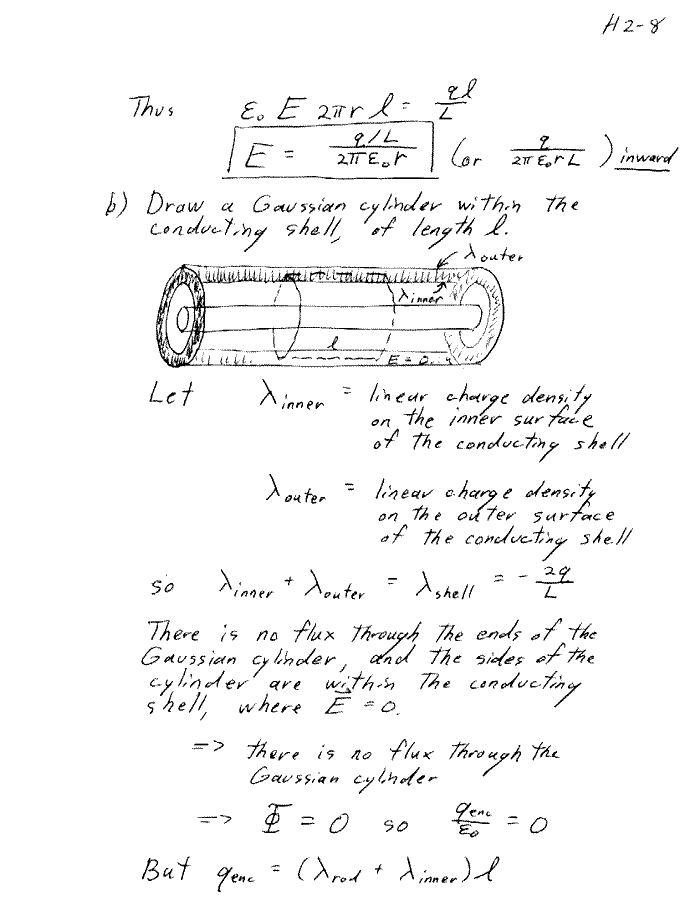 H2-8
Thus ε₀ E 2πr l = ql/L
E = (q/L)/(2πε₀r) (or q/(2πε₀rL)) inward
b) Draw a Gaussian cylinder within the
conducting shell, of length l.
λouter
λinner
l
E = 0
Let λinner = linear charge density
on the inner surface
of the conducting shell
λouter = linear charge density
on the outer surface
of the conducting shell
so λinner + λouter = λshell = - 2q/L
There is no flux through the ends of the
Gaussian cylinder, and the sides of the
cylinder are within the conducting
shell, where E⃗ = 0.
=> there is no flux through the
Gaussian cylinder
=> Φ = 0 so qenc/ε₀ = 0
But qenc = (λrod + λinner)l